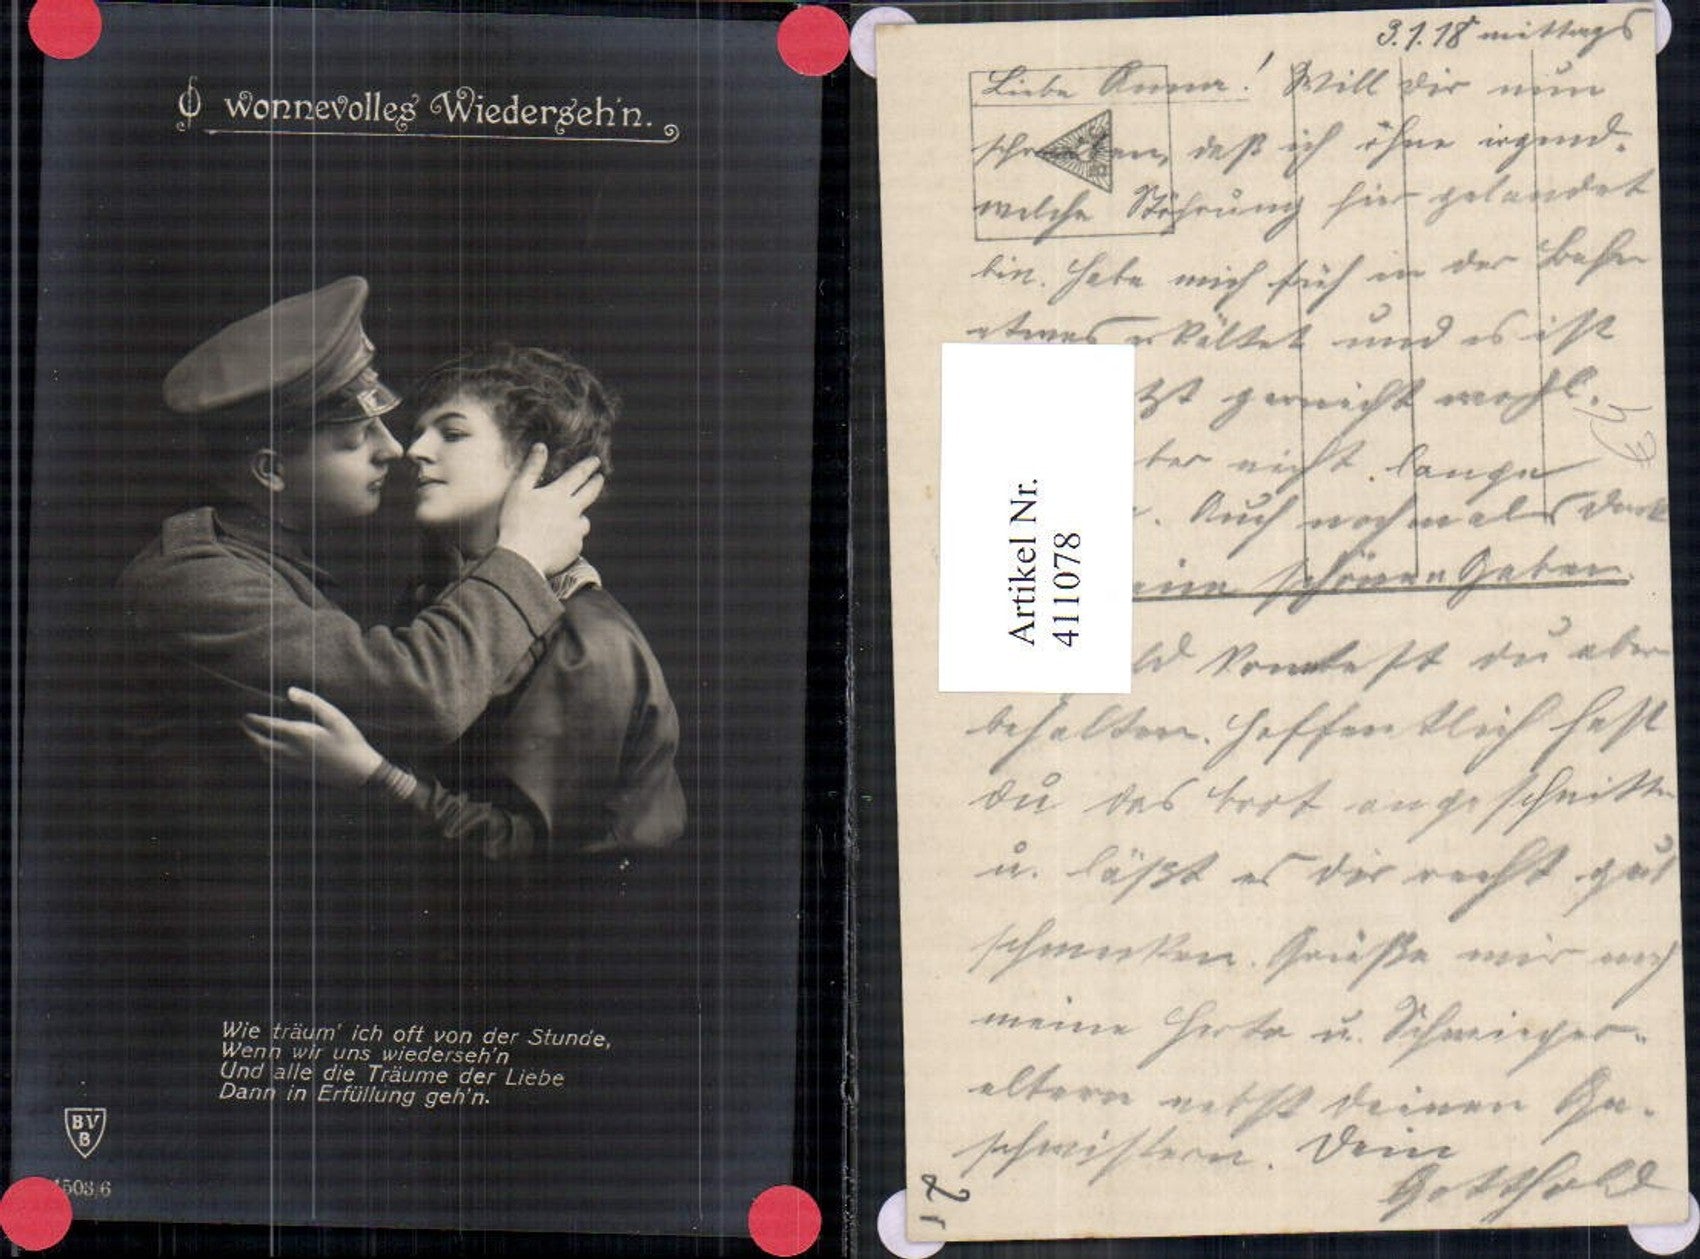 O wonnevolles Wiederseh'n.
Wie träum' ich oft von der Stunde,
Wenn wir uns wiederseh'n
Und alle die Träume der Liebe
Dann in Erfüllung geh'n.
BV
B
4503/6
3.1.18 mittags
Liebe Anna! Will dir nun
schreiben, daß ich ohne irgend-
welche Stöhrung hier gelandet
bin. Habe mich früh in der Bahn
etwas erkältet und es ist
gar nicht wohl.
aber nicht lange
Auch nochmals Dank
schönen Gaben.
konntest du aber
behalten. Hoffentlich hast
du das Brot angeschnitten
u. läßt es dir recht gut
schmecken. Grüße mir noch
meine Herta u. Schwieger-
eltern nebst deinen Ge-
schwistern. Dein
Gotthold
Artikel Nr.
411078